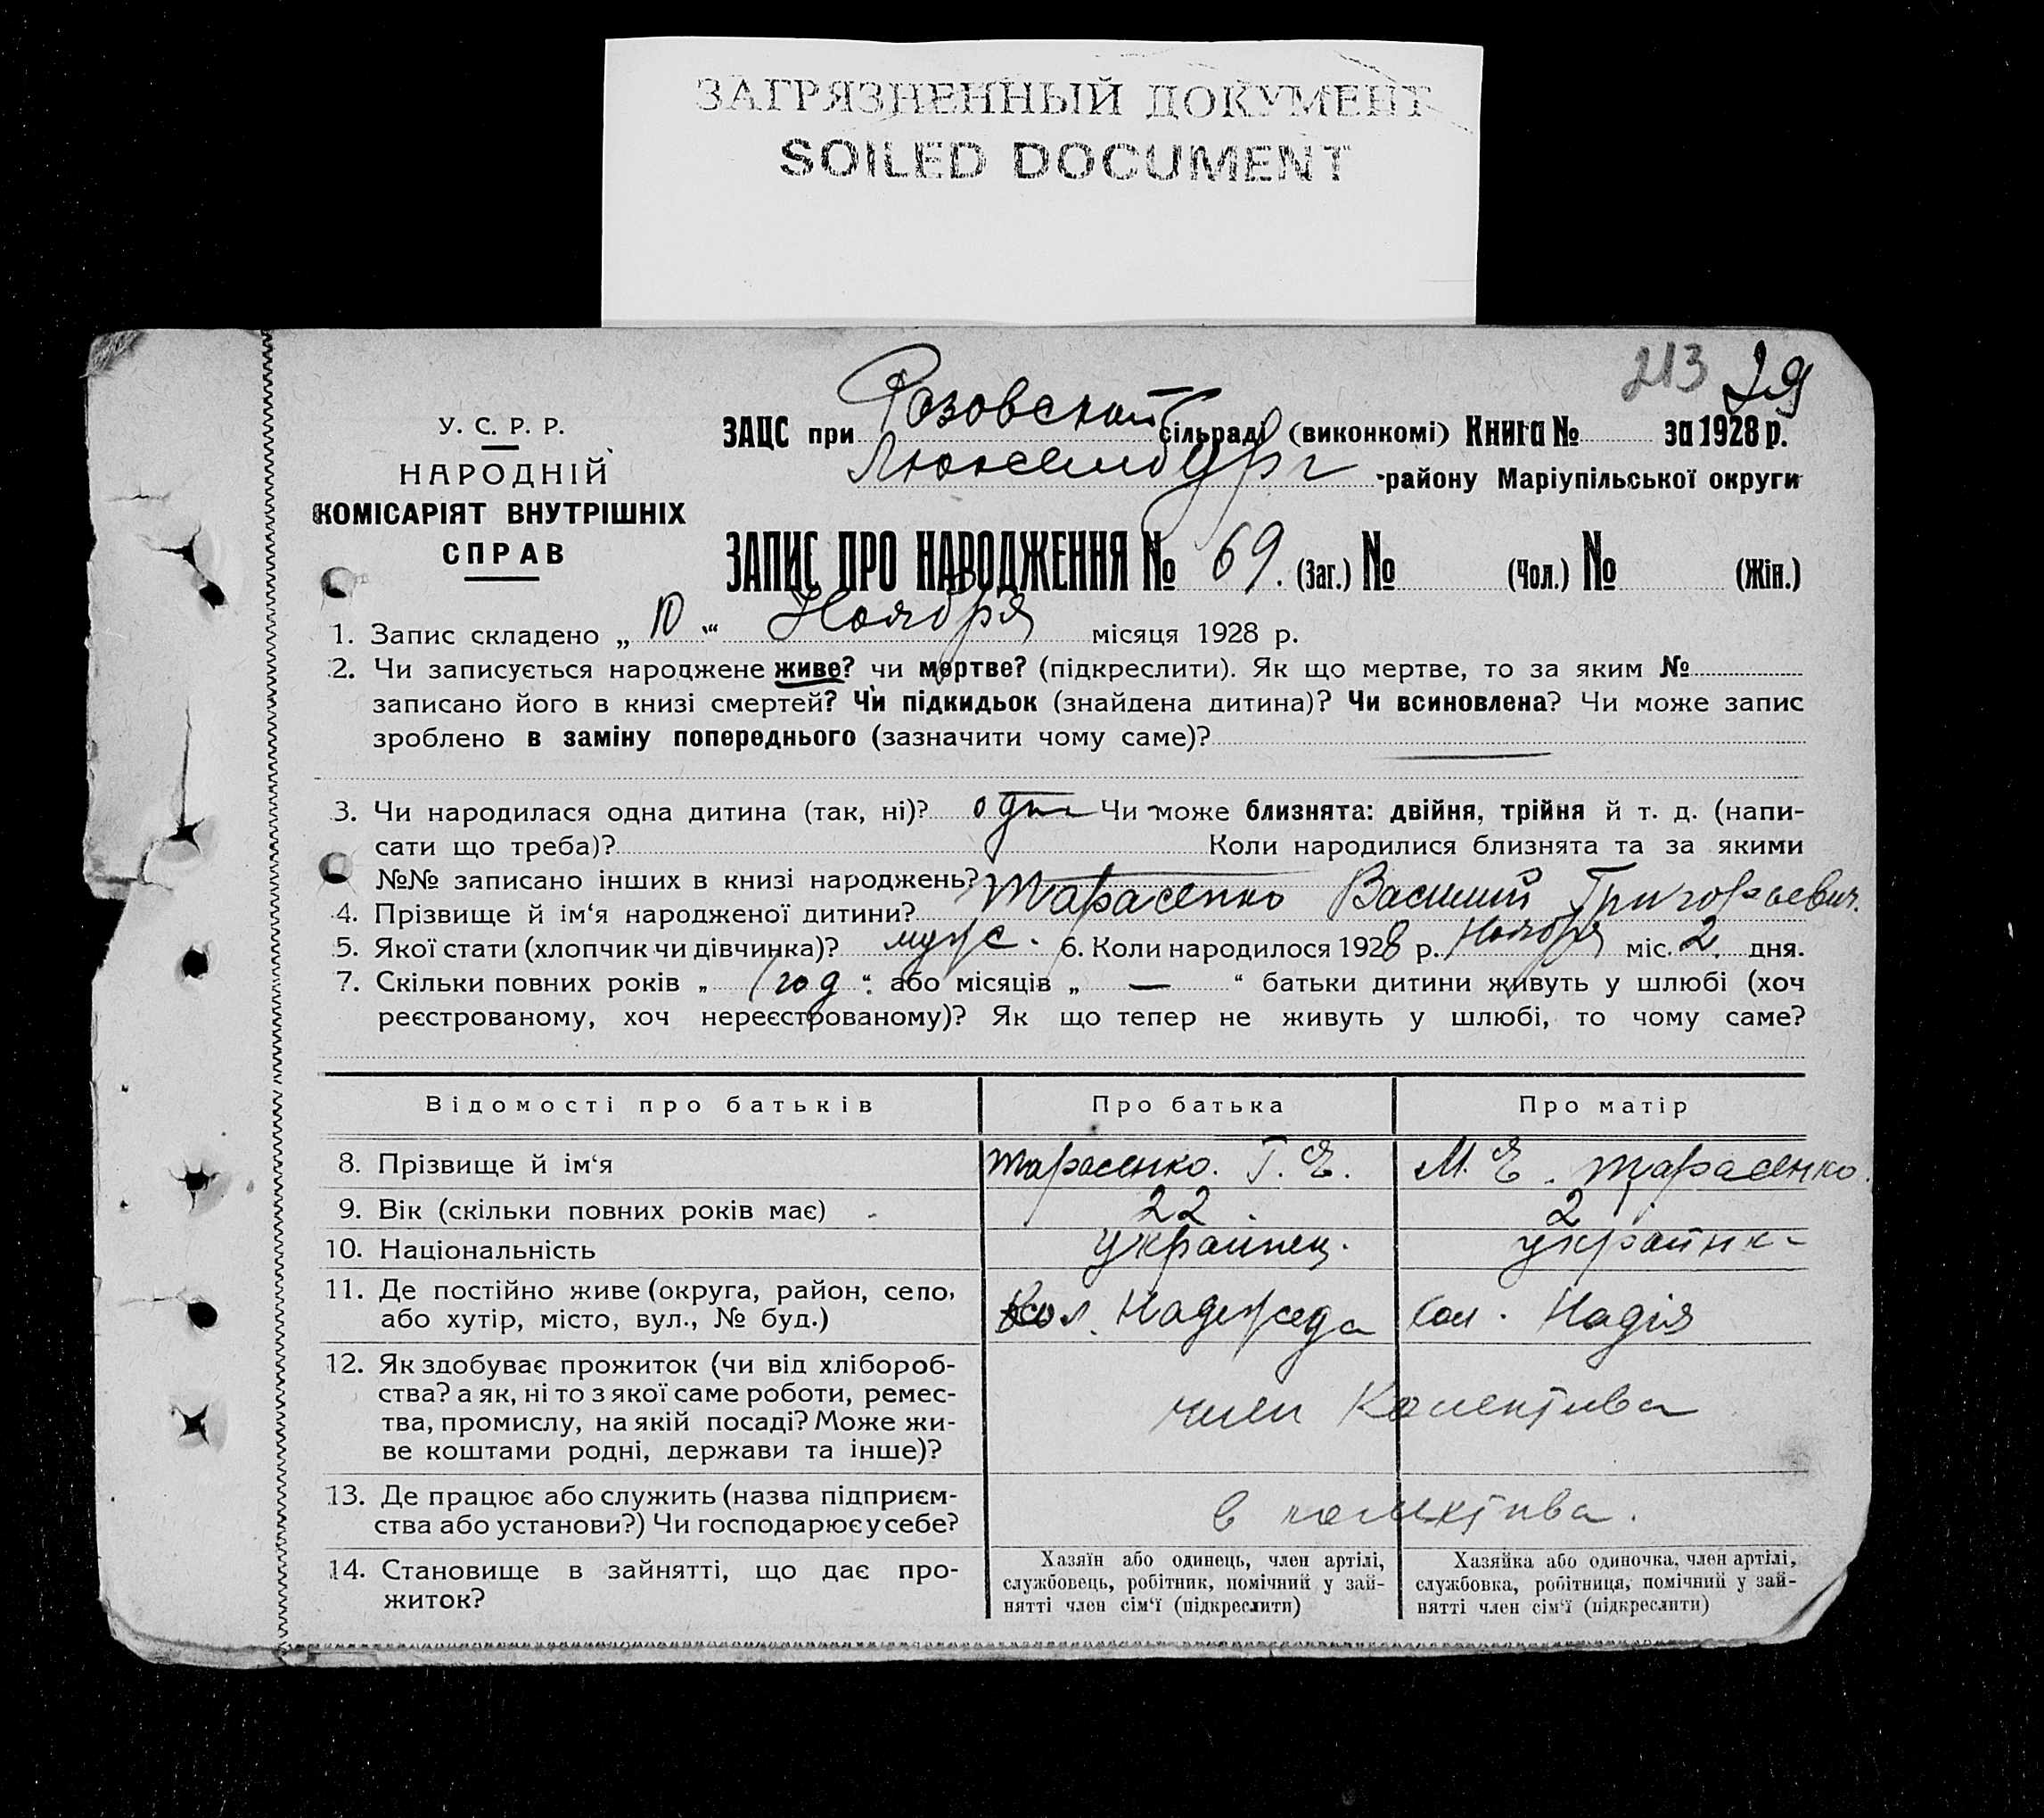 ЗАГРЯЗНЕННЫЙ ДОКУМЕНТ
SOILED DOCUMENT
213 29
У. С. Р. Р.
НАРОДНІЙ
КОМІСАРІЯТ ВНУТРІШНІХ
СПРАВ
ЗАЦС при Розовской сільраді (виконкомі) Книга № за 1928 р.
Люксембург району Маріупільської округи
ЗАПИС ПРО НАРОДЖЕННЯ № 69. (Заг.) № (Чол.) № (Жін.)
1. Запис складено „ 10 “ Ноября місяця 1928 р.
2. Чи записується народжене живе? чи мертве? (підкреслити). Як що мертве, то за яким №
записано його в книзі смертей? Чи підкидьок (знайдена дитина)? Чи всиновлена? Чи може запис
зроблено в заміну попереднього (зазначити чому саме)?
3. Чи народилася одна дитина (так, ні)? Чи може близнята: двійня, трійня й т. д. (напи-
сати що треба)? Коли народилися близнята та за якими
№№ записано інших в книзі народжень?
4. Прізвище й ім‘я народженої дитини? Тарасенко Василий Григорьевич.
5. Якої стати (хлопчик чи дівчинка)? муж. 6. Коли народилося 1928 р. Ноября міс. 2 дня.
7. Скільки повних років „ 1 год “ або місяців „ — “ батьки дитини живуть у шлюбі (хоч
реєстрованому, хоч нереєстрованому)? Як що тепер не живуть у шлюбі, то чому саме?
Відомості про батьків Про батька Про матір
8. Прізвище й ім‘я Тарасенко. Г. Е. М. Е. Тарасенко.
9. Вік (скільки повних років має) 22.
10. Національність Украинец. украинка
11. Де постійно живе (округа, район, село,
або хутір, місто, вул., № буд.) Кол. Надежда Кол. Надія
12. Як здобуває прожиток (чи від хлібороб-
ства? а як, ні то з якої саме роботи, ремес-
тва, промислу, на якій посаді? Може жи-
ве коштами родні, держави та інше)?
член Колектива
13. Де працює або служить (назва підприєм-
ства або установи?) Чи господарює у себе?
в колектива.
14. Становище в зайнятті, що дає про-
житок?
Хазяїн або одинець, член артілі,
службовець, робітник, помічний у зай-
нятті член сім‘ї (підкреслити)
Хазяйка або одиночка, член артілі,
службовка, робітниця, помічний у зай-
нятті член сім‘ї (підкреслити)